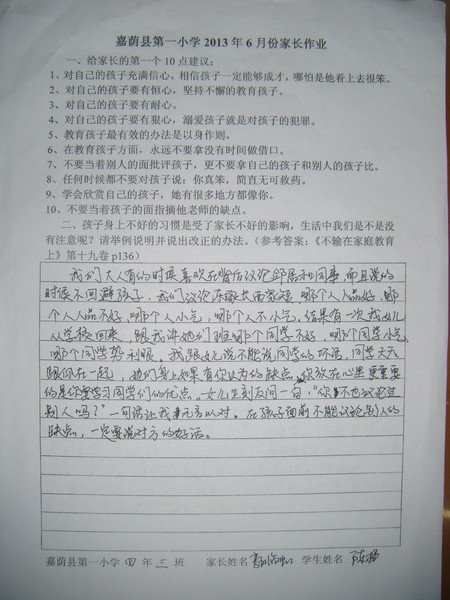 嘉荫县第一小学 2013 年 6 月份家长作业
一、给家长的第一个 10 点建议：
1、对自己的孩子充满信心，相信孩子一定能够成才，哪怕是他看上去很笨。
2、对自己的孩子要有恒心，坚持不懈的教育孩子。
3、对自己的孩子要有耐心。
4、对自己的孩子要有狠心，溺爱孩子就是对孩子的犯罪。
5、教育孩子最有效的办法是以身作则。
6、在教育孩子方面，永远不要拿没有时间做借口。
7、不要当着别人的面批评孩子，更不要拿自己的孩子和别人的孩子比。
8、任何时候都不要对孩子说：你真笨，简直无可救药。
9、学会欣赏自己的孩子，她有很多地方都像你。
10、不要当着孩子的面指摘他老师的缺点。
二、孩子身上不好的习惯是受了家长不好的影响，生活中我们是不是没
有注意呢？请举例说明并说出改正的办法。（参考答案：《不输在家庭教育
上》第十九卷 p136）
我们大人有的时候喜欢在背后议论邻居和同事，而且说的
时候不回避孩子，我们议论东家长西家短，哪个人人品好，哪
个人人品不好，哪个人小气，哪个人不小气，结果有一次我女儿
从学校回来，跟我讲她们班哪个同学不好，哪个同学小气，
哪个同学势利眼。我跟女儿说不能说同学的坏话，同学天天
跟你在一起，她们身上如果有你认为的缺点，你放在心里更重要
的是你要学习同学们的优点。女儿立刻反问一句，“你不也议论过
别人吗？”一句话让我无言以对。在孩子面前不能议论别人的
缺点，一定要说对方的好话。
嘉荫县第一小学 四 年 三 班 家长姓名 学生姓名 陈